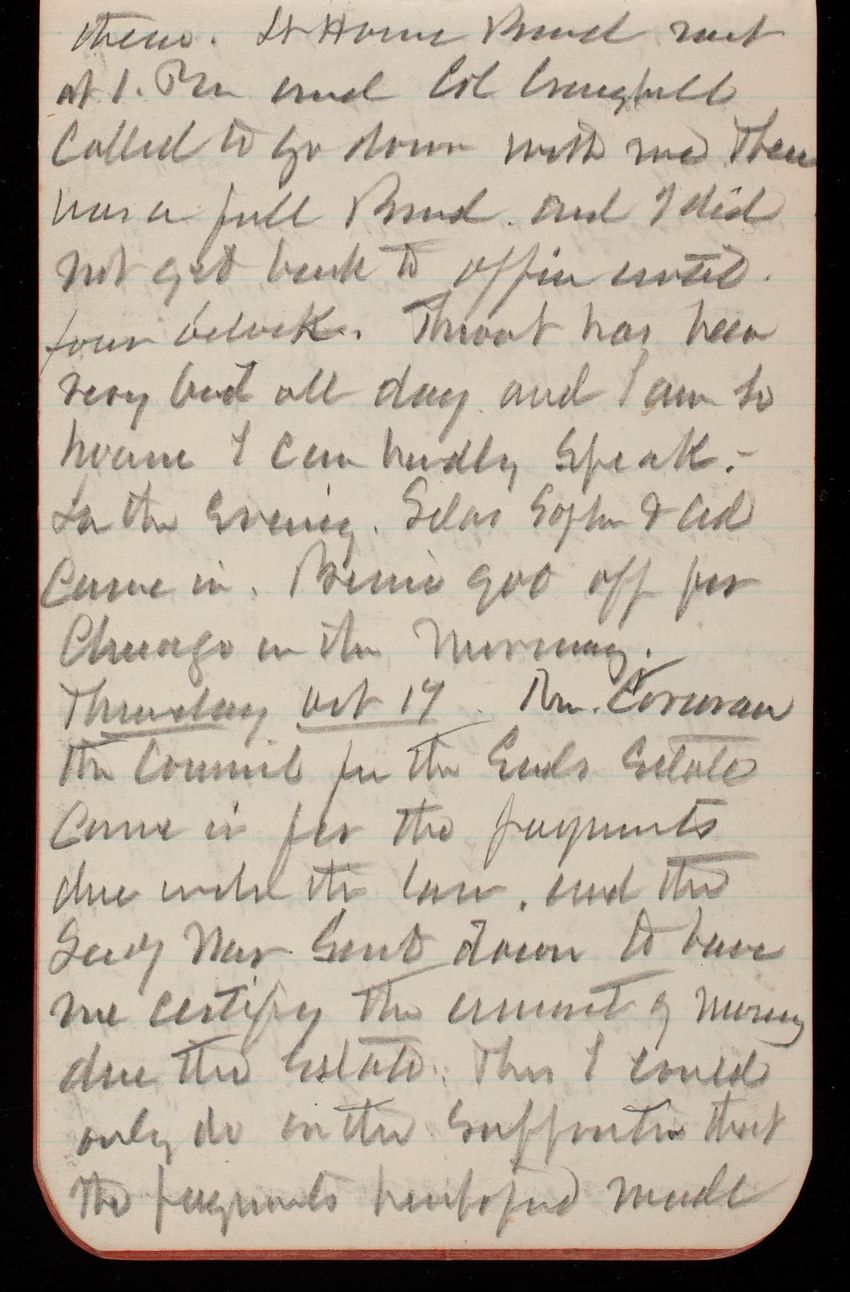 them. Lt House Board met
at 1. Pm and Col Craighill
Called to go down with me There
was a full Board. and I did
not get back to office until.
four oclock. Throat has been
very bad all day. and I am so
hoarse I can hardly speak.-
In the Evening. Silas Sophie &
Came in. got off for
Chicago in the Morning.
Thursday Oct 17. Mr. Corcoran
the Council for the Eads Estate
Came in for the payments
due under the law. and the
Secy War Sent down to have
me certify the amount of money
due the Estate. This I could
only do on the Supposition that
the payments heretofore made